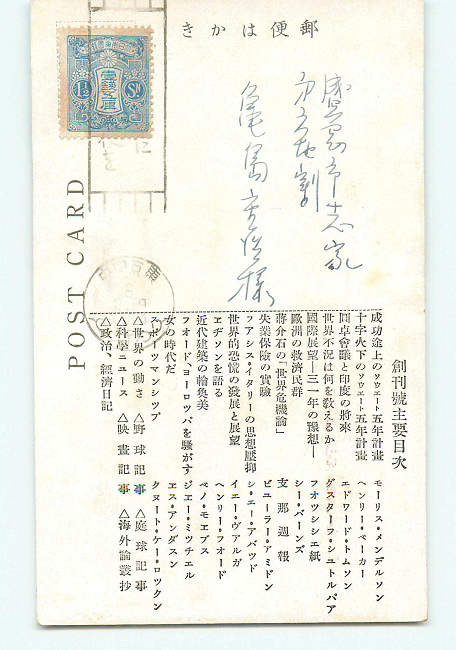 郵便はかき
POST CARD
盛岡市志家
亀島
様
創刊號主要目次
成功途上のソウエート五年計畫 モーリス・メンデルソン
十字火下のソウエート五年計畫 ヘンリー・ベーカー
圓卓會議と印度の將來 エドワード・トムソン
世界不況は何を敎えるか グスターフ・シユトルパア
國際展望―三一年の豫想― フオツシシエ紙
歐洲の救濟民群 シー・バーンズ
蔣介石の「世界危機論」 支那週報
失業保險の實驗 ビユーラー・アミドン
フアシスイタリーの思想壓抑 シ・エー・アバツド
世界的恐慌の發展と展望 イエー・ヴアルガ
エヂソンを語る ヘンリー・フオード
近代建築の輪奐美 ベノ・モエブス
フオード、ヨーロツパを騷がす ジエー・ミツチエル
女の時代だ エス・アンダスン
スポーツマンシツプ クヌート・ケー・ロツクン
△世界の動き △野球記事 △庭球記事
△科學ニユース △映畫記事 △海外論叢抄
△政治、經濟日記